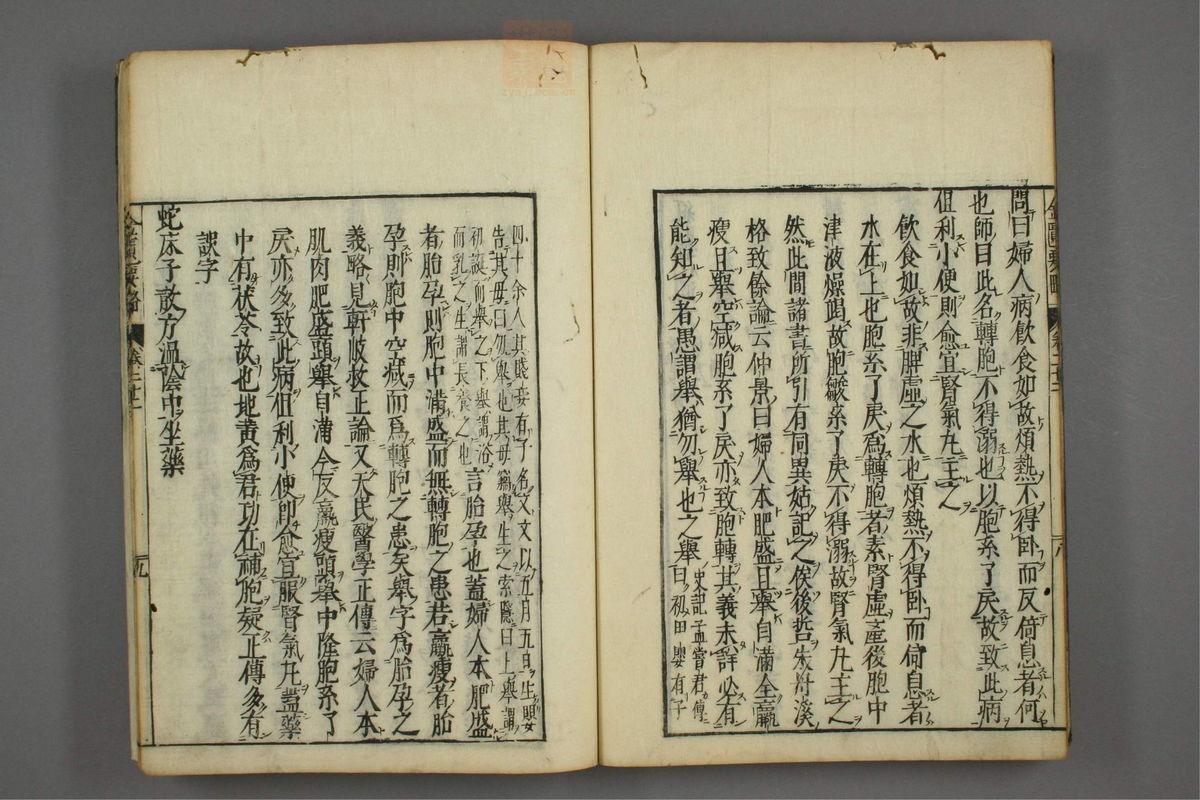 金匱要略 卷二十二 八
問曰婦人病飲食如故煩熱不得臥而反倚息者何
也師曰此名轉胞不得溺也以胞系了戾故致此病
但利小便則愈宜腎氣丸主之
飲食如故非脾虛之水也煩熱不得臥而倚息者
水在上也胞系了戾爲轉胞者素腎虛產後胞中
津液燥竭故胞繳系了戾不得溺故腎氣丸主之
然此間諸書所引有同異姑記之俟後哲朱丹溪
格致餘論云仲景曰婦人本肥盛且舉自滿全羸
瘦且舉空減胞系了戾亦致胞轉其義未詳必有
能知之者愚謂舉猶勿舉也之舉
史記孟嘗君傳
曰初田嬰有子
四十余人其賤妾有子名文文以五月五日生嬰
告其母曰勿舉也其母竊舉生之索隱曰上舉謂
初誕而舉之下舉謂浴
而乳之生謂長養之也
言胎孕也蓋婦人本肥盛
者胎孕則胞中滿盛而無轉胞之患若羸瘦者胎
孕則胞中空減而爲轉胞之患矣舉字爲胎孕之
義略見軒岐救正論又天民醫學正傳云婦人本
肌肉肥盛頭舉自滿今反羸瘦頭舉中隆胞系了
戾亦多致此病但利小便即愈宜服腎氣丸蓋藥
中有茯苓故也地黃爲君功在補胞疑正傳多有
誤字
蛇床子散方溫陰中坐藥
金匱要略 卷二十二 九